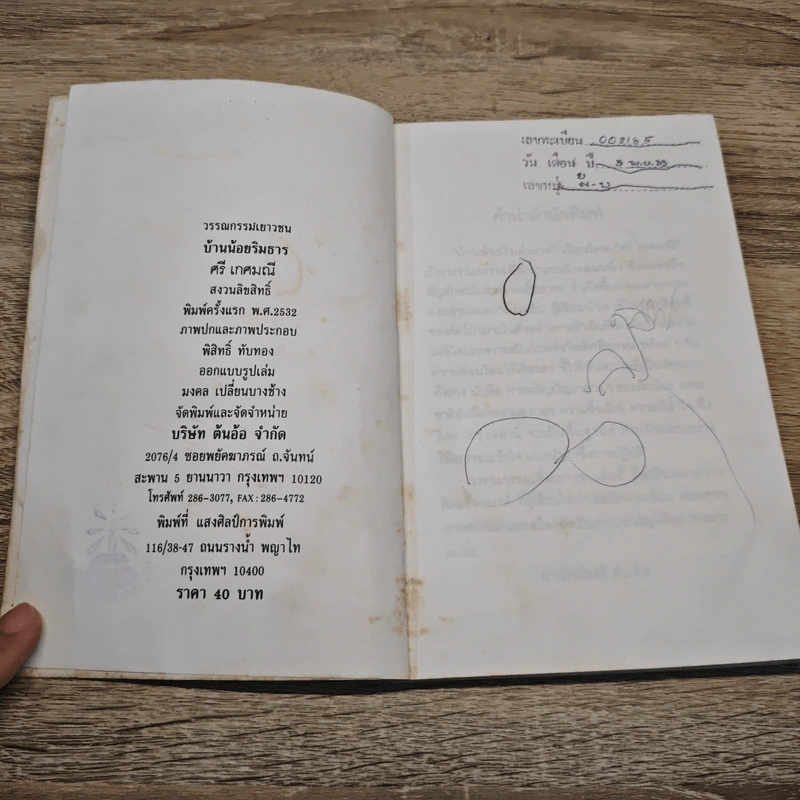 วรรณกรรมเยาวชน
บ้านน้อยริมธาร
ศรี เกศมณี
สงวนลิขสิทธิ์
พิมพ์ครั้งแรก พ.ศ.2532
ภาพปกและภาพประกอบ
พิสิทธิ์ ทับทอง
ออกแบบรูปเล่ม
มงคล เปลี่ยนบางช้าง
จัดพิมพ์และจัดจำหน่าย
บริษัท ต้นอ้อ จำกัด
2076/4 ซอยพยัคฆาภรณ์ ถ.จันทน์
สะพาน 5 ยานนาวา กรุงเทพฯ 10120
โทรศัพท์ 286-3077, FAX : 286-4772
พิมพ์ที่ แสงศิลป์การพิมพ์
116/38-47 ถนนรางน้ำ พญาไท
กรุงเทพฯ 10400
ราคา 40 บาท
เลขทะเบียน 002185
วัน เดือน ปี 5 พ.ย.33
เลขหมู่